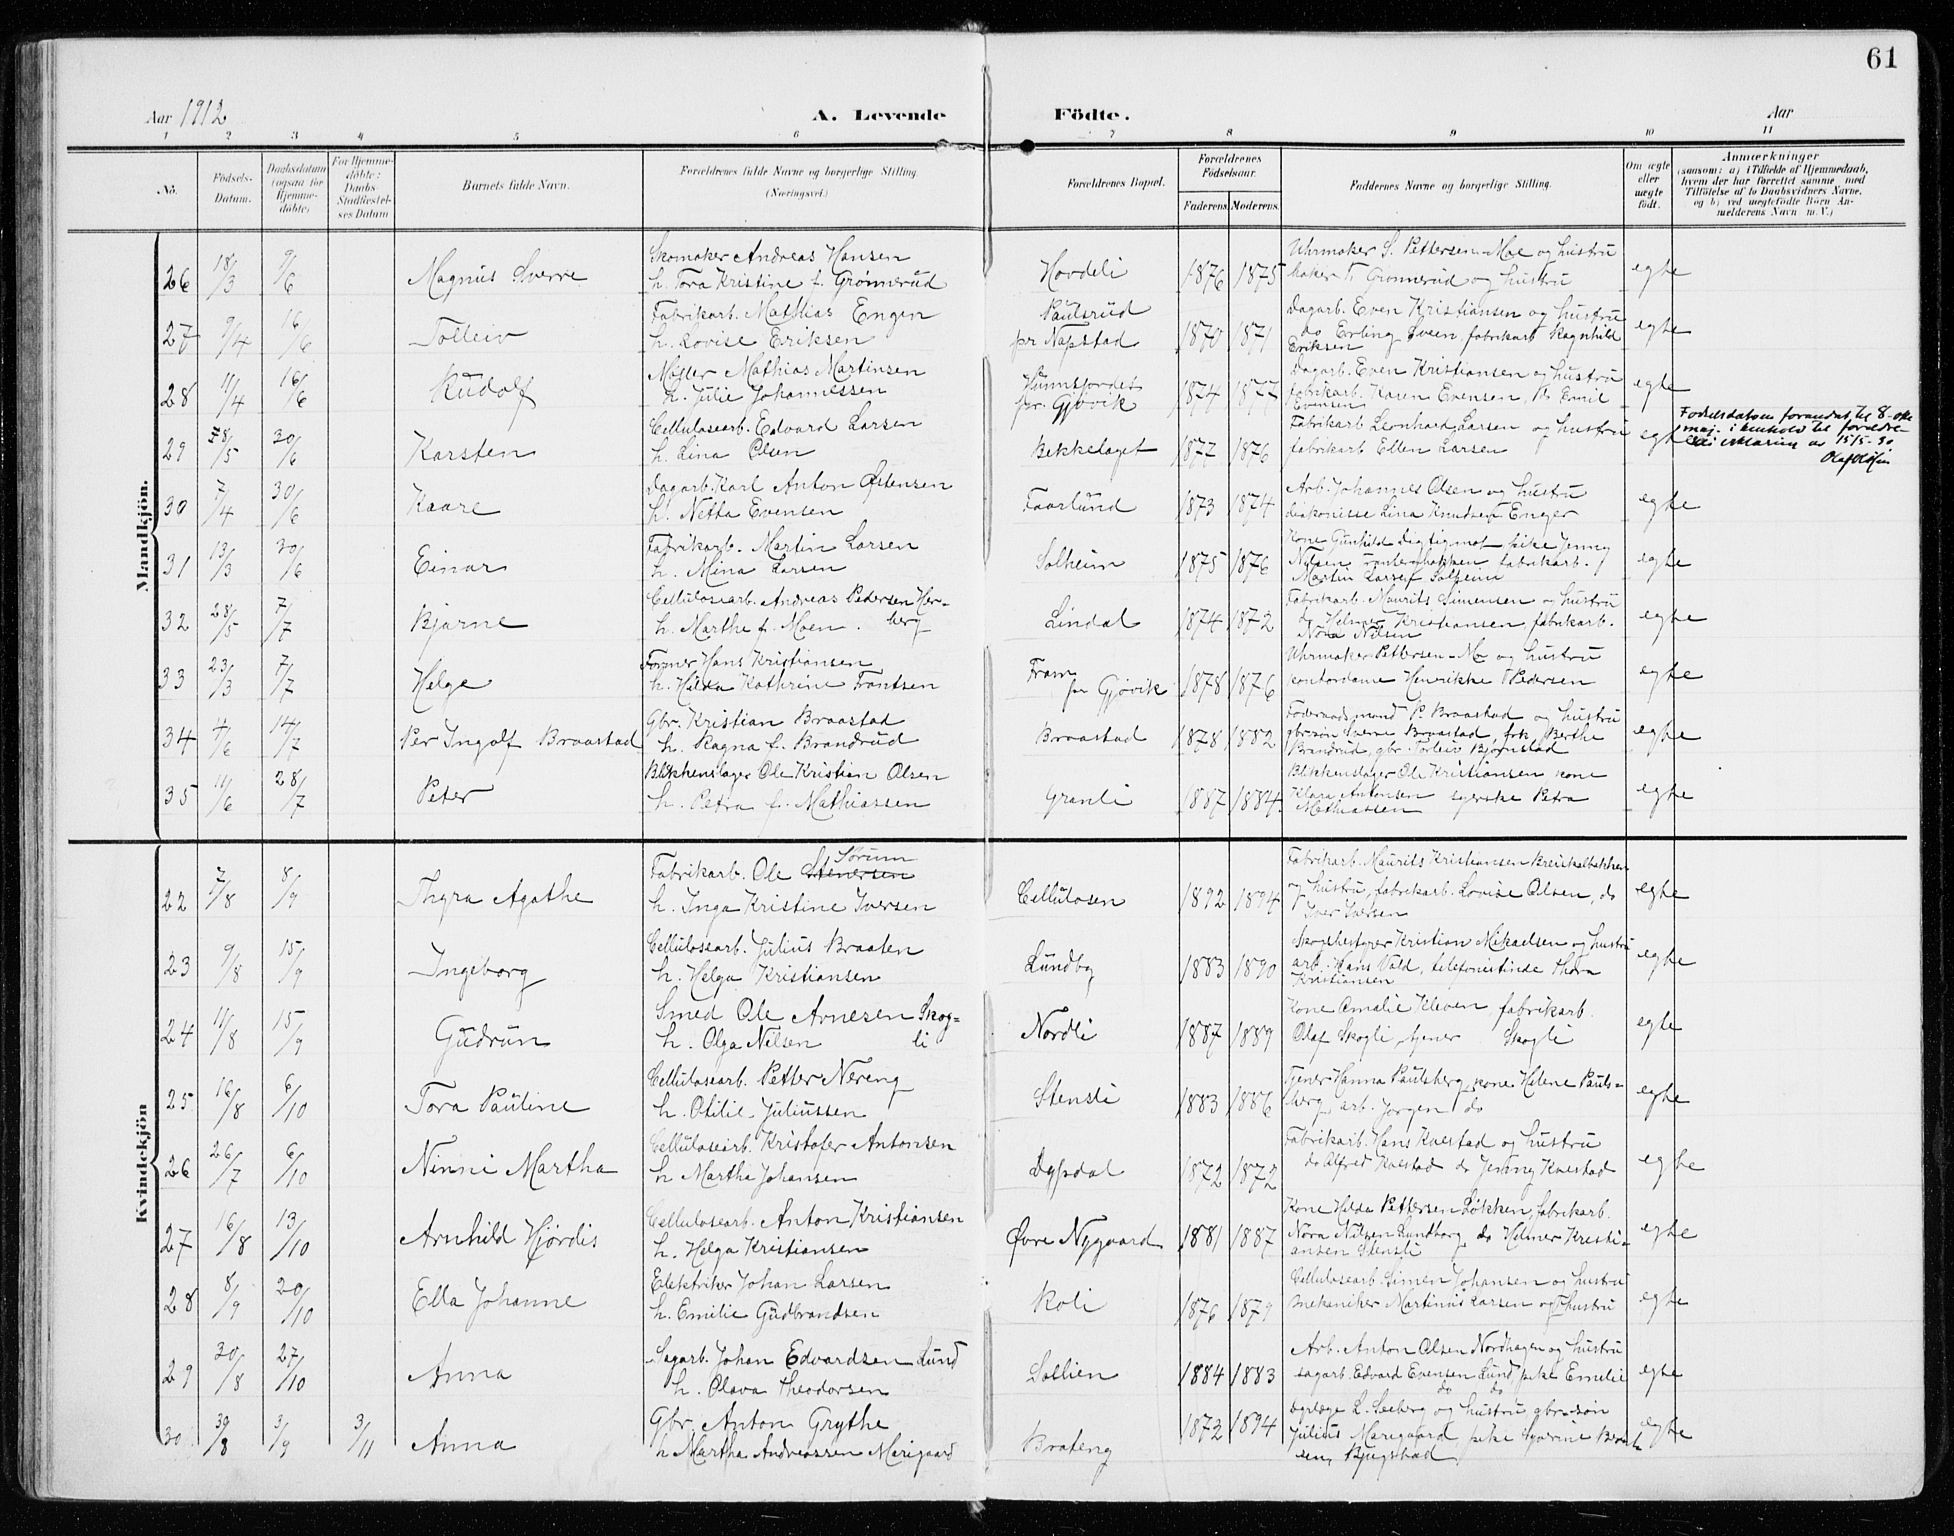 61
Aar 1912
A. Levende Födte.
Aar
1 2 3 4 5 6 7 8 9 10 11
No.
Födsels-Datum.
Daabsdatum (ogsaa for Hjemmedöbte)
For Hjemmedöbte: Daabs Stadfæstelses Datum
Barnets fulde Navn.
Forældrenes fulde Navne og borgerlige Stilling.
(Næringsvei.)
Forældrenes Bopæl.
Forældrenes Födselsaar.
Faderens. Moderens.
Faddernes Navne og borgerlige Stilling.
Om ægte eller uægte födt.
Anmærkninger
(saasom: a) i Tilfælde af Hjemmedaab, hvem der har forrettet samme, med Tilföielse af to Daabsvidners Navne, og b) ved uægtefödte Börn Anmelderens Navn m. V.)
Mandkjön.
26 18/3 9/6 Magnus Sverre Skomaker Andreas Hansen Hovdeli 1876 1875 Uhrmaker S. Pettersen-Moe og hustru egte
h. Tora Kristine f. Grønnerud Grønnerud og hustru
27 9/4 16/6 Tolleiv Fabrikarb. Mathias Engen Paulsrud 1870 1871 Dagarb. Even Kristiansen og hustru egte
h. Lovise Eriksen pr Napstad do Erling Even fabrikarb Ragnhild
Eriksen
28 11/4 16/6 Rudolf Møller Mathias Martinsen Hunnsfordet 1874 1877 Dagarb. Even Kristiansen og hustru egte
h. Julie Johannessen pr. Gjøvik fabrikarb. Karen Evensen, Emil
Evensen
29 28/5 30/6 Karsten Cellulosearb. Edvard Larsen Bekkelaget 1877 1876 Fabrikarb Leonhard Larsen og hustru egte
h. Lina Olsen fabrikarb Ellen Larsen
Fødselsdatoen forandret til 8-de
maj. i henhold til foreldre-
erklæring av 15/5-30
30 7/4 30/6 Kaare Dagarb. Karl Anton Østensen Faarlund 1873 1874 Arb. Johannes Olsen og hustru egte
h. Netta Evensen diakonisse Lina Knudsen Enger
31 13/3 30/6 Einar Fabrikarb. Martin Larsen Solheim 1875 1876 Kone Gunhild pike Jenny egte
h. Mina Larsen Nilsen fabrikarb.
Martin Larsen Solheim
32 28/5 7/7 Bjarne Cellulosearb. Andreas Pedersen Her- Lindal 1874 1872 Fabrikarb. Maurits Simensen og hustru egte
h. Marthe f. Moen. berg do Helmer Kristiansen, fabrikarb.
Nora Nilsen
33 23/3 7/7 Helge Former Hans Kristiansen Fram 1878 1876 Uhrmaker Pettersen-M og hustru egte
h. Hilda Kathrine Frantsen pr Gjøvik kontordame Henrikke Pedersen
34 4/6 14/7 Per Ingolf Braastad Gbr. Kristian Braastad Braastad 1878 1882 Føderaadsmand P. Braastad og hustru egte
h. Ragna f. Brandrud gbrsøn Sverre Braastad, frk. Berthe
Brandrud, gbr. Torleiv Bjørnstad
35 11/6 28/7 Peter Blikkenslager Ole Kristian Olsen Granli 1887 1884 Blikkenslager Ole Kristiansen kone egte
h. Petra f. Mathiassen Klara Antonsen syerske Petra
Mathiassen
Kvindekjön
22 7/8 8/9 Thyra Agathe Fabrikarb. Ole Stenersen Sørum Cellulosen 1892 1894 Fabrikarb. Maurits Kristiansen egte
h. Inga Kristine Iversen og hustru, fabrikarb. Lovise Olsen, do
Iver Iversen
23 9/8 15/9 Ingeborg Cellulosearb. Julius Braaten Lundby 1883 1890 Skogbestyrer Kristian Mikaelsen og hustru egte
h. Helga Kristiansen arb. Hans Vold, telefonistinde Thora
Kristiansen
24 11/8 15/9 Gudrun Smed Ole Arnesen Skog- Nordli 1887 1889 Kone Amalie Kleven, fabrikarb. egte
h. Olga Nilsen li Olaf Skogli, tjener Skogli
25 16/8 6/10 Tora Pauline Cellulosearb. Petter Nereng Stensli 1883 1886 Tjener Hanna Paulsberg, kone Helene Pauls- egte
h. Otilie Juliussen berg, arb. Jørgen do
26 26/7 6/10 Ninni Martha Cellulosearb. Kristofer Antonsen Dypdal 1872 1872 Fabrikarb. Hans Kvestad og hustru egte
h Martha Johansen do Alfred Kvestad do Jenny Kvestad
27 16/8 13/10 Arnhild Hjørdis Cellulosearb. Anton Kristiansen Øvre Nygaard 1881 1887 Kone Hilda Pettersen Løkken, fabrikarb. egte
h. Helga Kristiansen Nora Nilsen Lundborg, do Helmer Kristi-
ansen Stensli
28 8/9 20/10 Ella Johanne Elektriker Johan Larsen Roli 1876 1879 Cellulosearb. Simen Johansen og hustru egte
h. Emilie Gudbrandsen mekaniker Martinius Larsen og hustru
29 30/8 27/10 Anna Sagarb. Johan Edvardsen Lund Sollien 1884 1883 Arb. Anton Olsen Nordhagen og hustru egte
h. Olava Theodorsen sagarb. Edvard Evensen Lund pike Emilie
do do
30 30/8 3/9 3/11 Anna Gbr. Anton Grythe Brateng 1872 1894 L. Seeberg og hustru gbr.søn egte
h Martha Andreassen Marigaard Julius Marigaard pike
Bjugstad